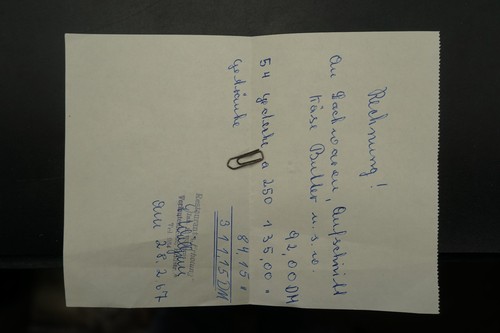 Rechnung!
An Backwaren, Aufschnitt
Käse Butter u. s. w. 92,00 DM
54 Gedecke a 250 135,00 "
Getränke 84,15 "
311,15 DM
den 28.2.67